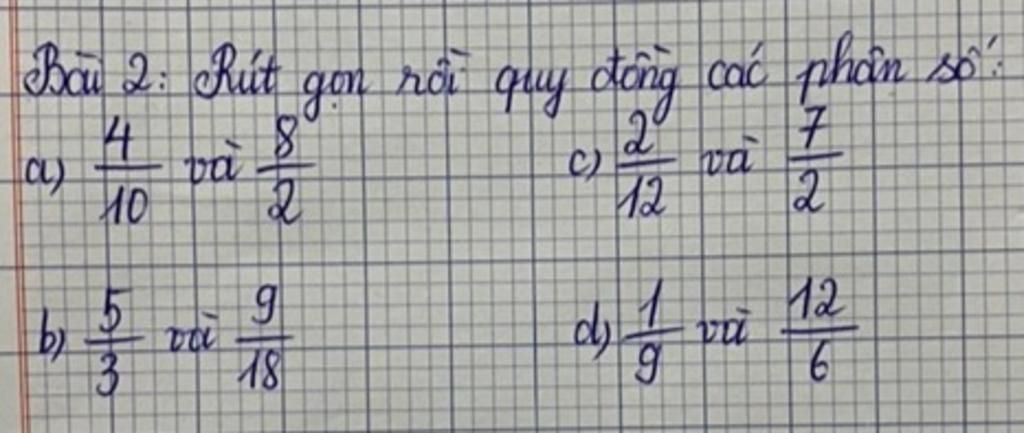 Bài 2: Rút gọn rồi quy đồng các phân số:
a) 4/10 và 8/2 c) 2/12 và 7/2
b) 5/3 và 9/18 d) 1/9 và 12/6